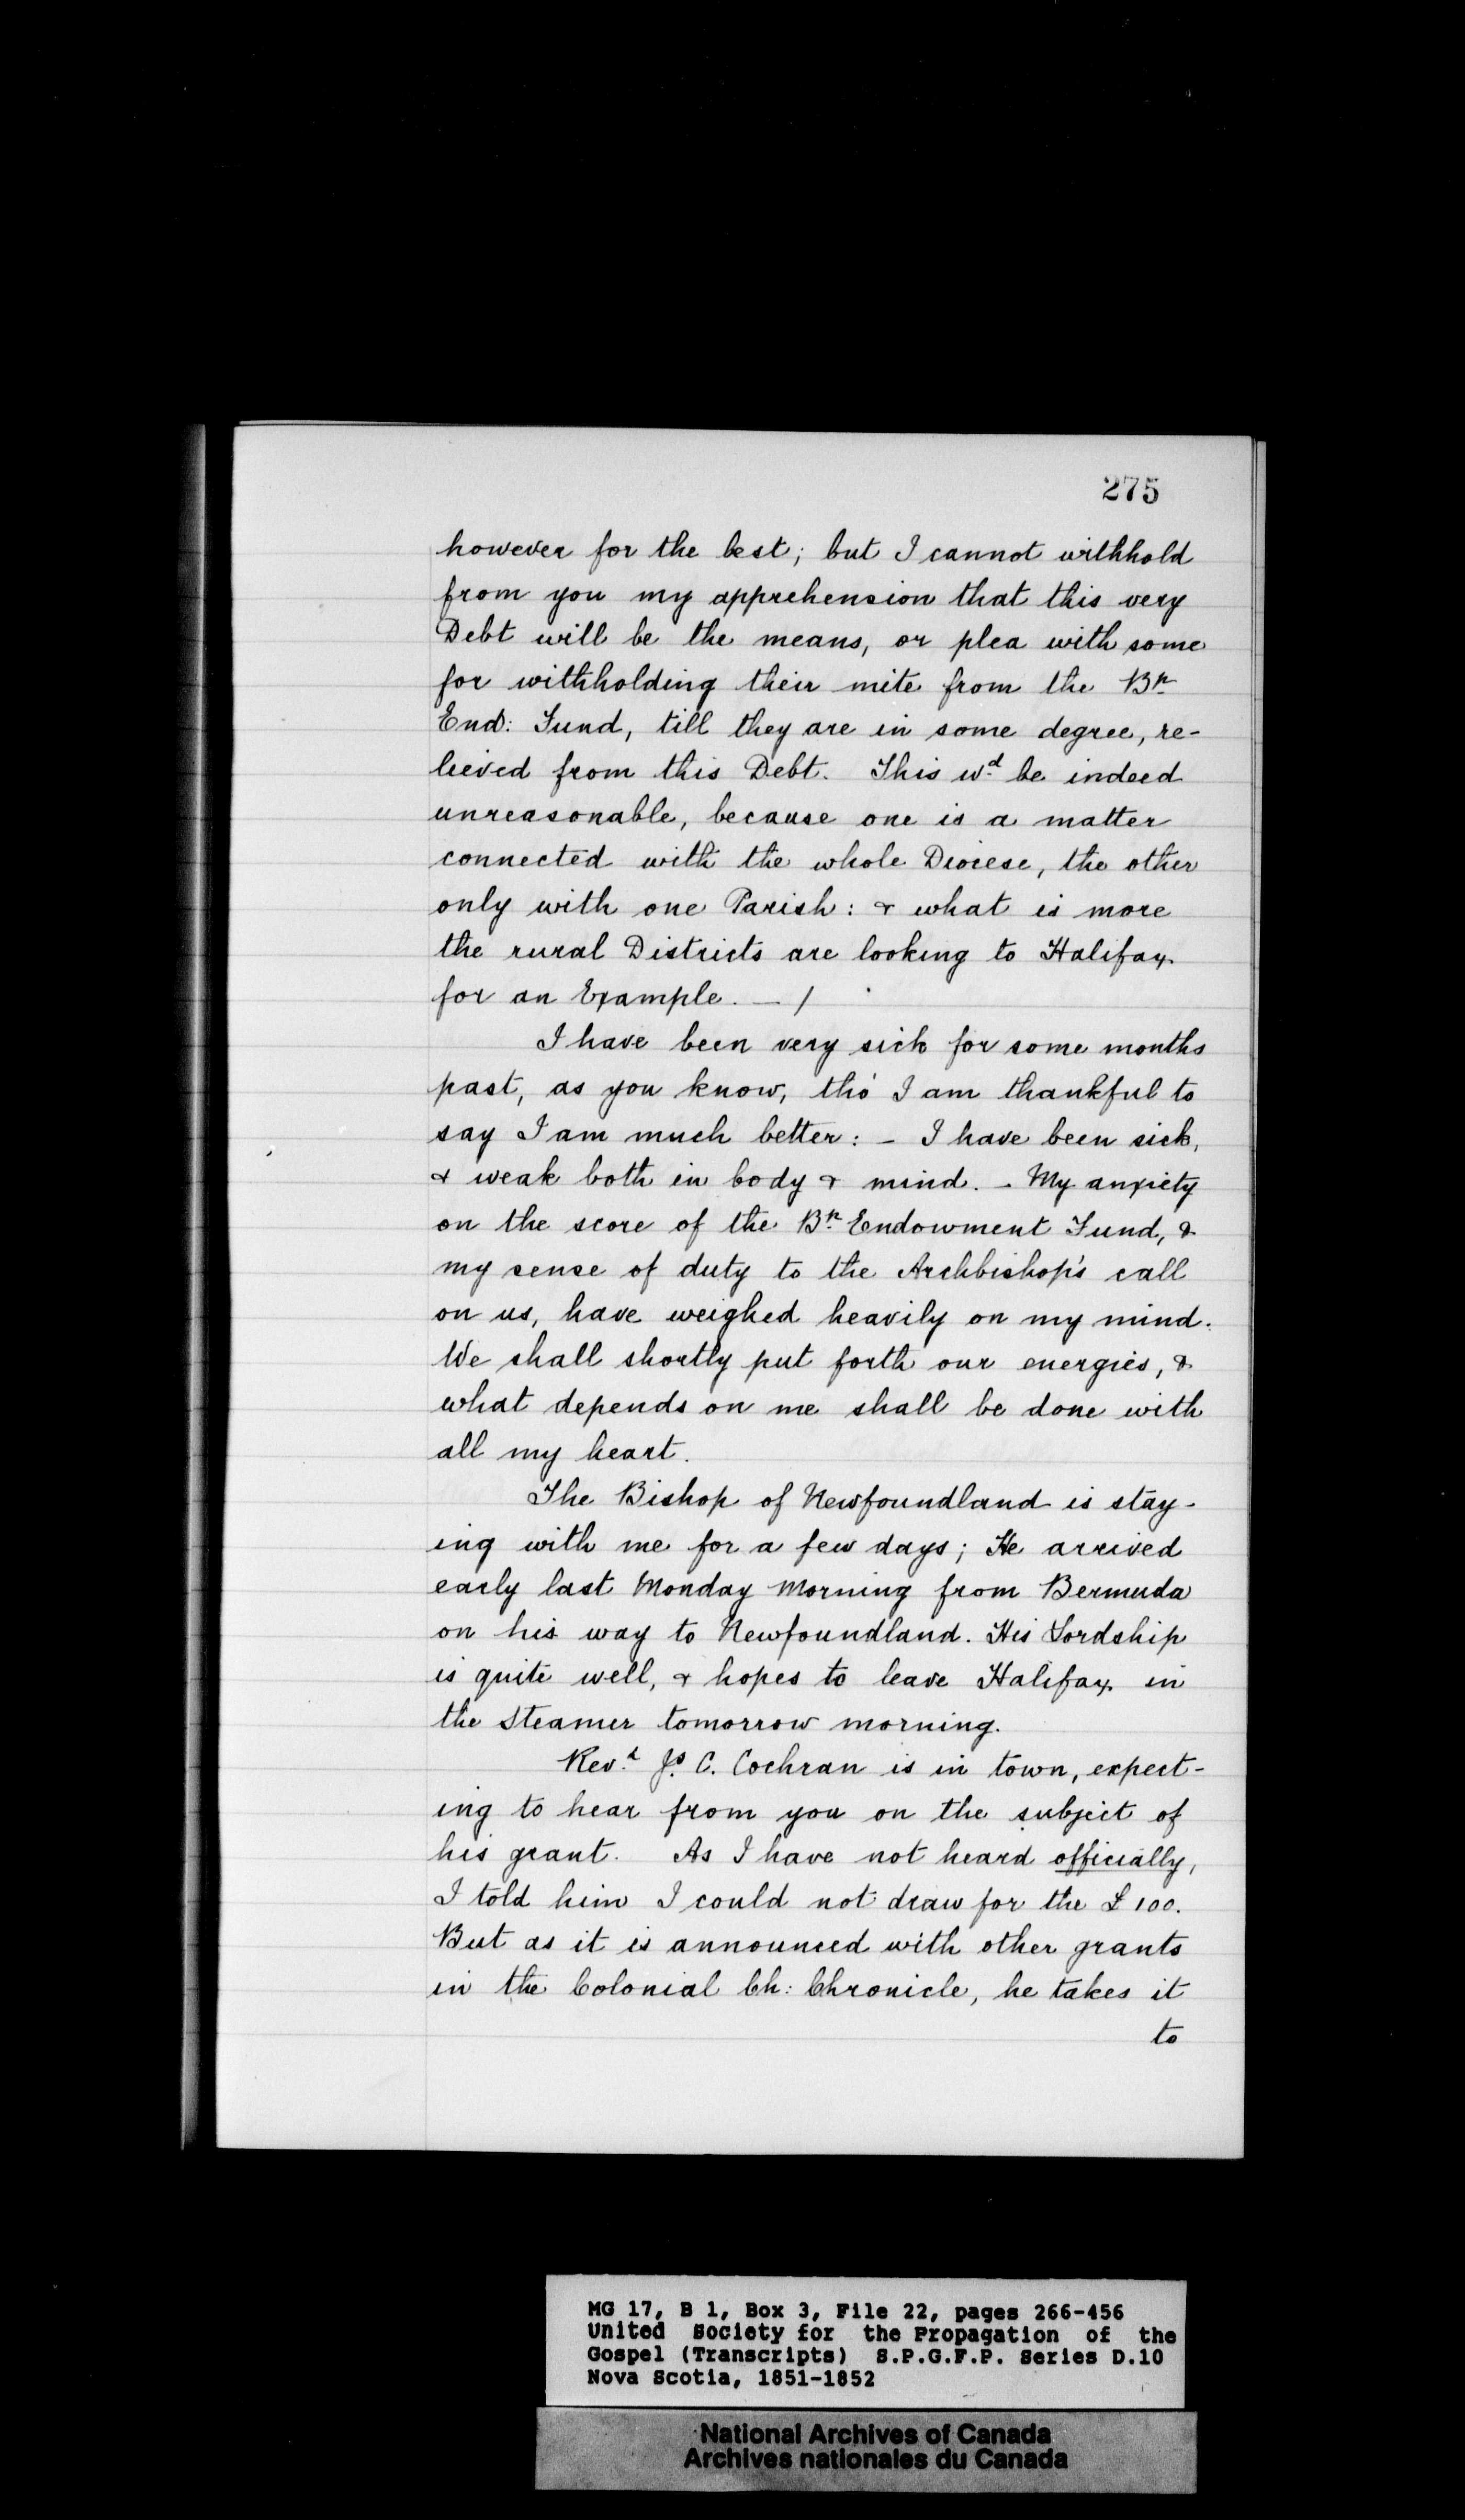 275
however for the best; but I cannot withhold
from you my apprehension that this very
Debt will be the means, or plea with some
for withholding their mite from the Bp
End: Fund, till they are in some degree, re-
lieved from this Debt. This wd be indeed
unreasonable, because one is a matter
connected with the whole Diocese, the other
only with one Parish: & what is more
the rural Districts are looking to Halifax
for an Example. — /
I have been very sick for some months
past, as you know, tho' I am thankful to
say I am much better: – I have been sick,
& weak both in body & mind. – My anxiety
on the score of the Bp Endowment Fund, &
my sense of duty to the Archbishop's call
on us, have weighed heavily on my mind.
We shall shortly put forth our energies, &
what depends on me shall be done with
all my heart.
The Bishop of Newfoundland is stay-
ing with me for a few days; He arrived
early last Monday Morning from Bermuda
on his way to Newfoundland. His Lordship
is quite well, & hopes to leave Halifax in
the Steamer tomorrow morning.
Revd Js C. Cochran is in town, expect-
ing to hear from you on the subject of
his grant. As I have not heard officially,
I told him I could not draw for the £100.
But as it is announced with other grants
in the Colonial Ch: Chronicle, he takes it
to
MG 17, B 1, Box 3, File 22, pages 266-456
United Society for the Propagation of the
Gospel (Transcripts) S.P.G.F.P. Series D.10
Nova Scotia, 1851-1852
National Archives of Canada
Archives nationales du Canada